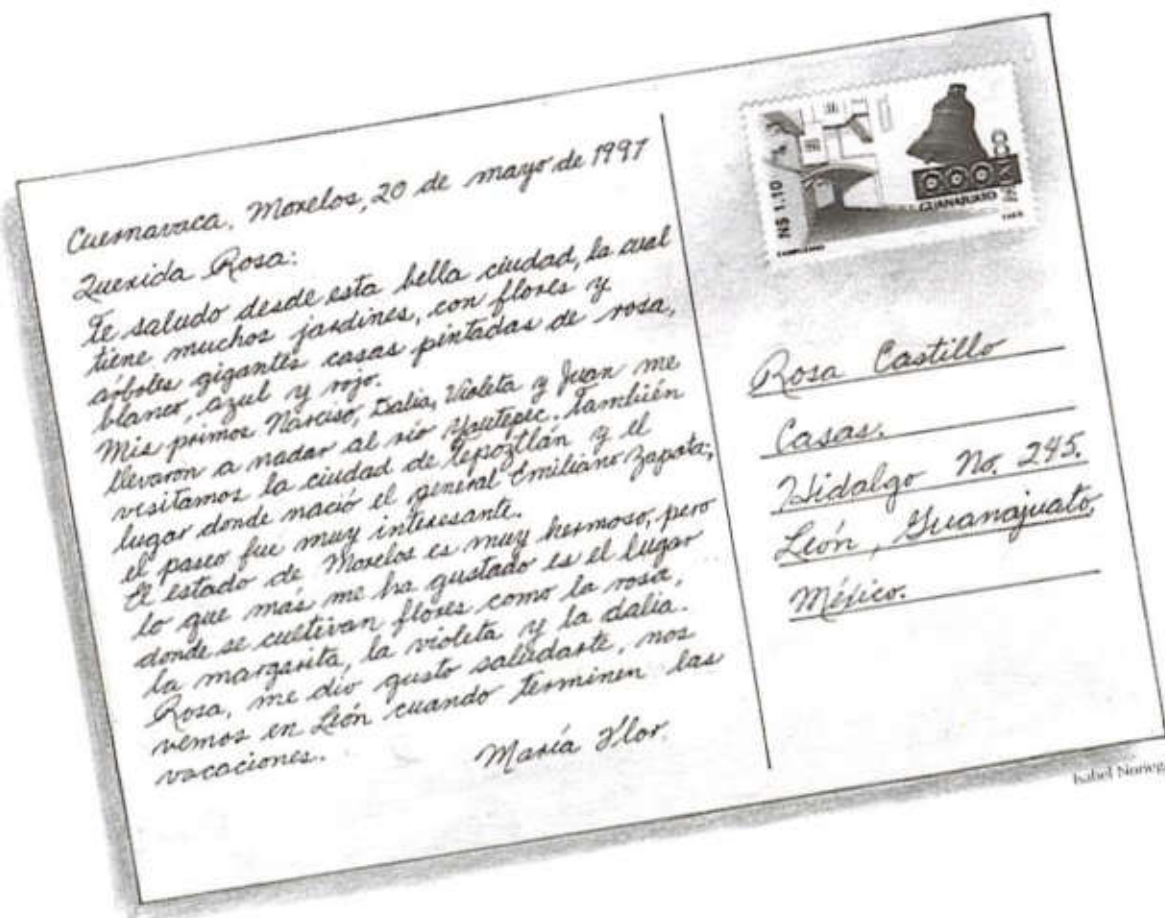 Cuernavaca, Morelos, 20 de mayo de 1997
Querida Rosa:
Te saludo desde esta bella ciudad, la cual
tiene muchos jardines, con flores y
árboles gigantes casas pintadas de rosa,
blanco, azul y rojo.
Mis primos Narciso, Dalia, Violeta y Juan me
llevaron a nadar al río Yautepec. También
visitamos la ciudad de Tepoztlán y el
lugar donde nació el general Emiliano Zapata;
el paseo fue muy interesante.
El estado de Morelos es muy hermoso, pero
lo que más me ha gustado es el lugar
donde se cultivan flores como la rosa,
la margarita, la violeta y la dalia.
Rosa, me dio gusto saludarte, nos
vemos en León cuando terminen las
vacaciones.
María Flor.
N$ 1.10
GUANAJUATO
Rosa Castillo
Casas.
Hidalgo No. 245.
León, Guanajuato,
México.
Isabel